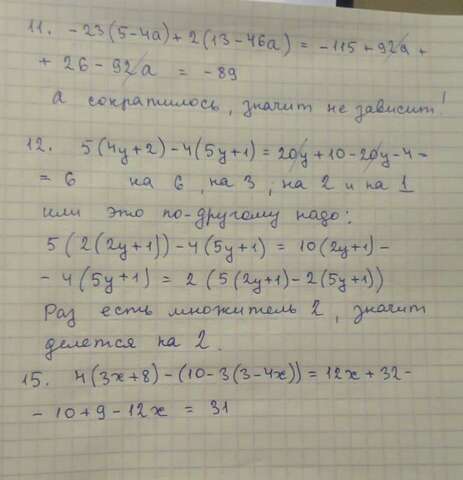 11. -23(5-4a)+2(13-46a) = -115+92a+
+ 26-92a = -89
а сократилось, значит не зависит!
12. 5(4y+2)-4(5y+1)=20y+10-20y-4=
= 6 на 6, на 3, на 2 и на 1
или это по-другому надо:
5(2(2y+1))-4(5y+1) = 10(2y+1)-
- 4(5y+1) = 2(5(2y+1)-2(5y+1))
Раз есть множитель 2, значит
делется на 2.
15. 4(3x+8)-(10-3(3-4x))=12x+32-
- 10+9-12x = 31